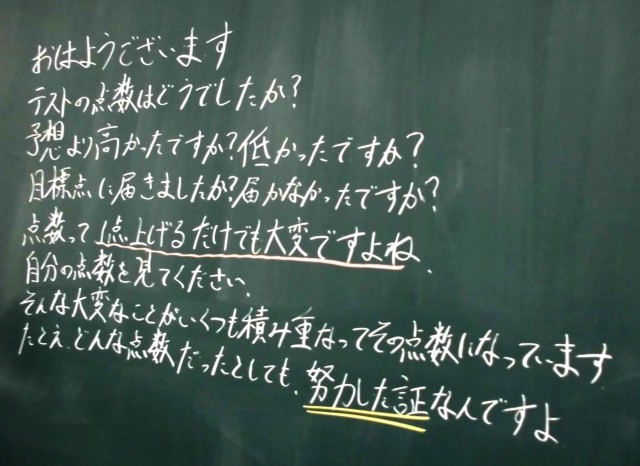 おはようございます
テストの点数はどうでしたか?
予想より高かったですか?低かったですか?
目標点に届きましたか?届かなかったですか?
点数って1点上げるだけでも大変ですよね、
自分の点数を見てください、
そんな大変なことがいくつも積み重なってその点数になっています
たとえ、どんな点数だったとしても、努力した証なんですよ